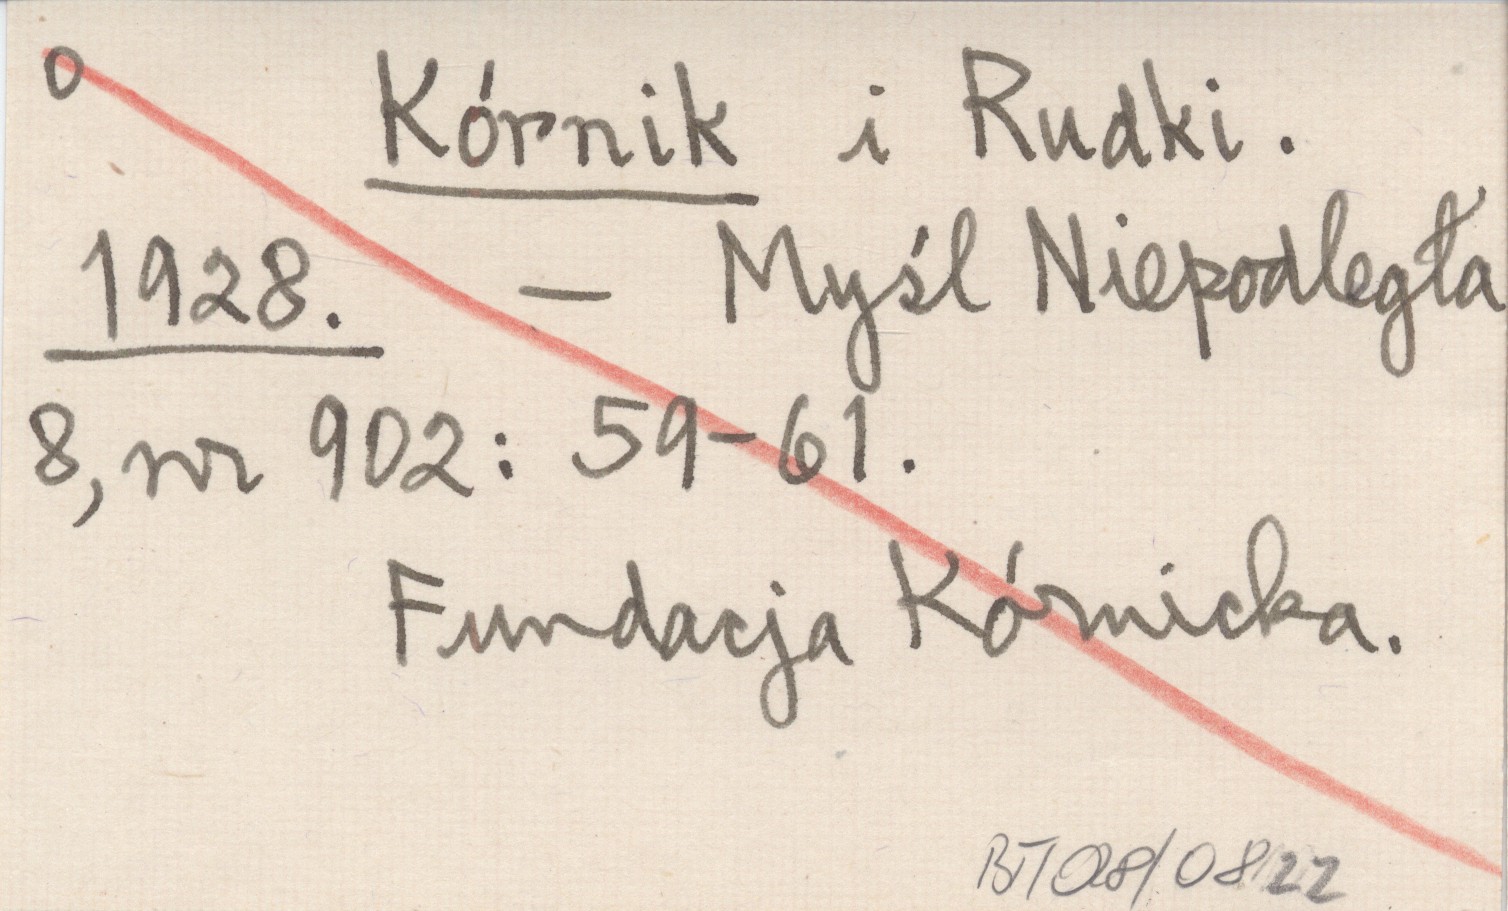 0 Kórnik i Rudki.
1928. — Myśl Niepodległa
8, nr 902: 59-61.
Fundacja Kórnicka.
BT/08/0822